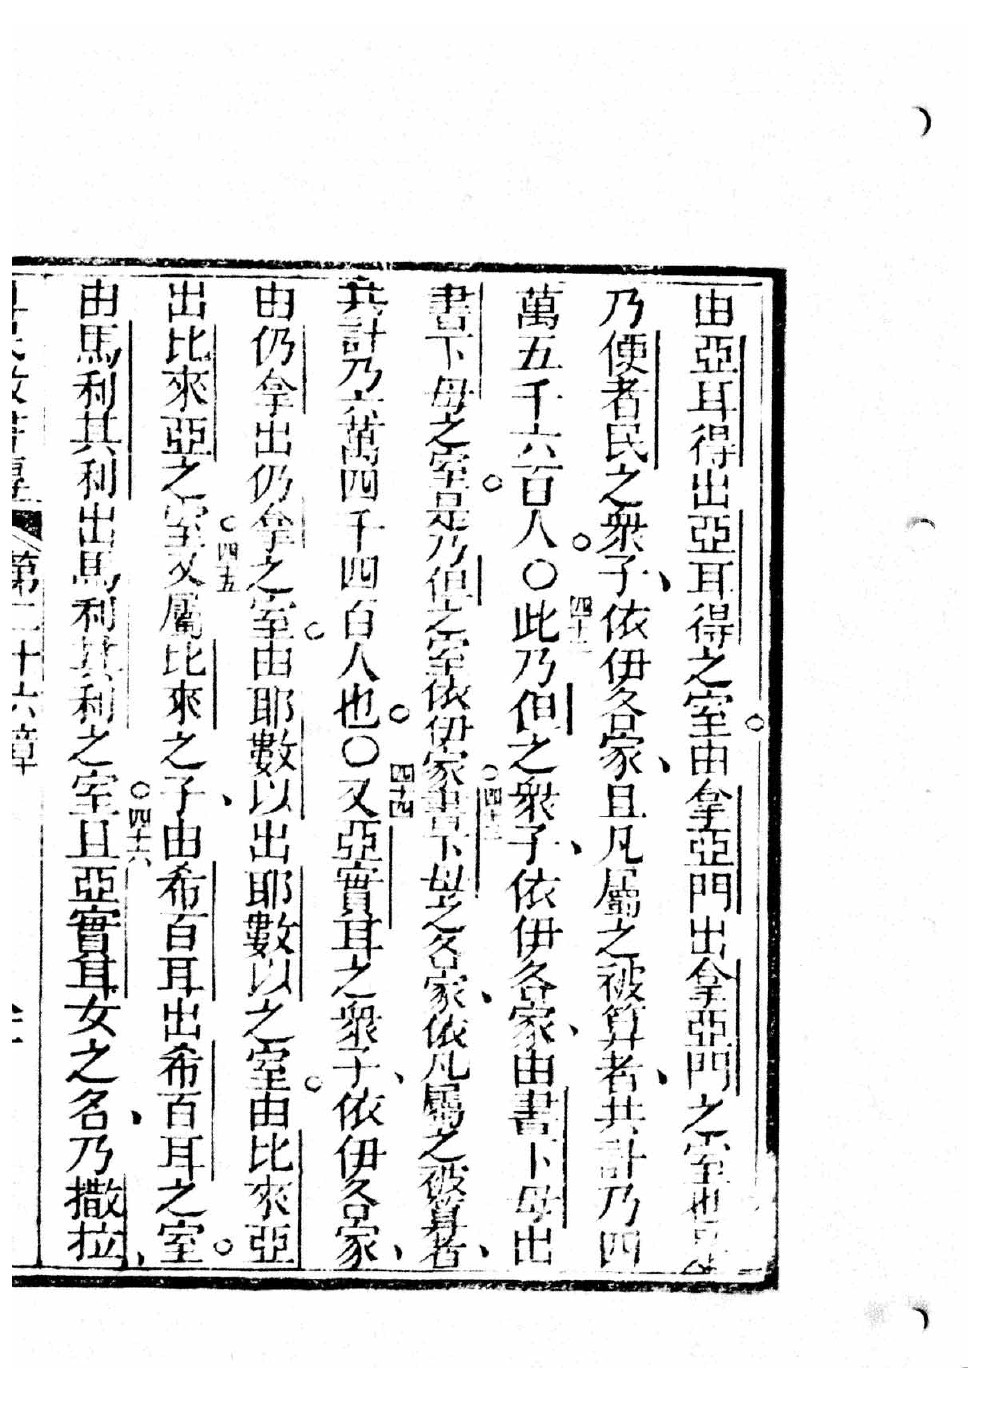 由亞耳得出亞耳得之室○由拿亞門出拿亞門之室也
乃便者民之衆子、依伊各家、且凡屬之被算者、共計乃四
萬五千六百人○四十二此乃但之衆子、依伊各家、由書下母出
書下母之室○是乃但之室依伊家○四十三書下母之各家、依凡屬之被算者、
共計乃六萬四千四百人也○四十四又亞實耳之衆子、依伊各家、
由仍拿出仍拿之室○由耶數以出耶數以之室○由比來亞
出比來亞之室○四五又屬比來之子、由希百耳出希百耳之室○
由馬利其利出馬利其利之室○四十六且亞實耳女之名、乃撒拉、
第二十六章